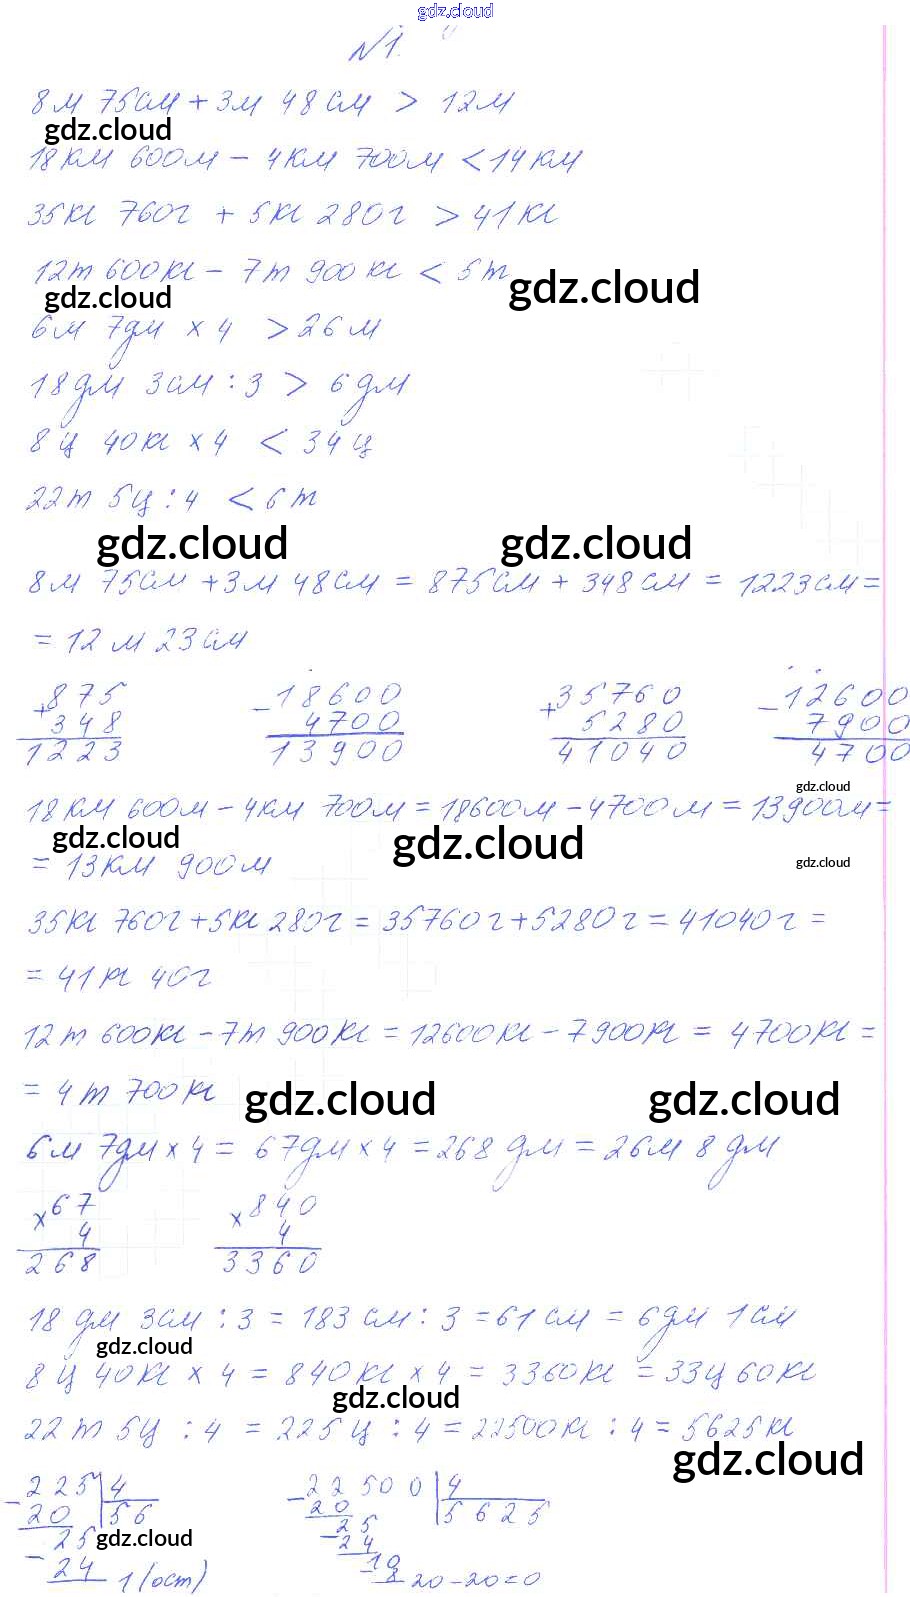 gdz.cloud
№1.
8м 75см + 3м 48см > 12м
gdz.cloud
18км 600м - 4км 700м < 14км
35кг 760г + 5кг 280г > 41кг
12т 600кг - 7т 900кг < 5т
gdz.cloud gdz.cloud
6м 7дм × 4 > 26м
18дм 3см : 3 > 6дм
8ц 40кг × 4 < 34ц
22т 5ц : 4 < 6т
gdz.cloud gdz.cloud
8м 75см + 3м 48см = 875см + 348см = 1223см =
= 12м 23см
+875 -18600 +35760 -12600
348 4700 5280 7900
1223 13900 41040 4700
gdz.cloud
18км 600м - 4км 700м = 18600м - 4700м = 13900м =
gdz.cloud gdz.cloud gdz.cloud
= 13км 900м
35кг 760г + 5кг 280г = 35760г + 5280г = 41040г =
= 41кг 40г
12т 600кг - 7т 900кг = 12600кг - 7900кг = 4700кг =
= 4т 700кг
gdz.cloud gdz.cloud
6м 7дм × 4 = 67дм × 4 = 268дм = 26м 8дм
×67 ×840
4 4
268 3360
18дм 3см : 3 = 183см : 3 = 61см = 6дм 1см
gdz.cloud
8ц 40кг × 4 = 840кг × 4 = 3360кг = 33ц 60кг
gdz.cloud
22т 5ц : 4 = 225ц : 4 = 22500кг : 4 = 5625кг
gdz.cloud
-225 4 -22500 4
20 56 20 5625
25 -25
gdz.cloud
-24 24
1(ост) -10
8 20-20=0